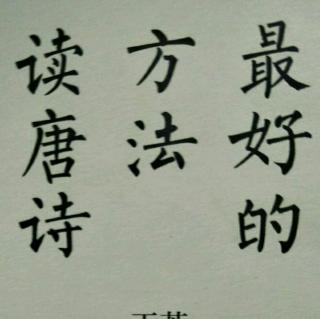 最好的
方法
读唐诗